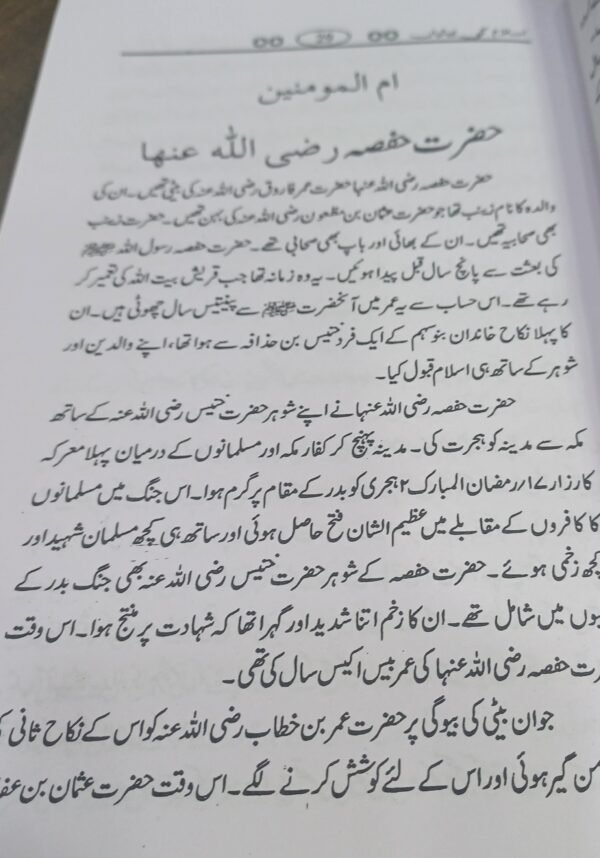 25
ام المومنین
حضرت حفصہ رضی اللہ عنہا
حضرت حفصہ رضی اللہ عنہا حضرت عمر فاروق رضی اللہ عنہ کی بیٹی تھیں۔ ان کی
والدہ کا نام زینب تھا جو حضرت عثمان بن مظعون رضی اللہ عنہ کی بہن تھیں۔ حضرت زینب
بھی صحابیہ تھیں۔ ان کے بھائی اور باپ بھی صحابی تھے۔ حضرت حفصہ رسول اللہ ﷺ
کی بعثت سے پانچ سال قبل پیدا ہوئیں۔ یہ وہ زمانہ تھا جب قریش بیت اللہ کی تعمیر کر
رہے تھے۔ اس حساب سے یہ عمر میں آنحضرت ﷺ سے پینتیس سال چھوٹی ہیں۔ ان
کا پہلا نکاح خاندان بنو سہم کے ایک فرد خنیس بن حذافہ سے ہوا تھا، اپنے والدین اور
شوہر کے ساتھ ہی اسلام قبول کیا۔
حضرت حفصہ رضی اللہ عنہا نے اپنے شوہر حضرت خنیس رضی اللہ عنہ کے ساتھ
مکہ سے مدینہ کو ہجرت کی۔ مدینہ پہنچ کر کفار مکہ اور مسلمانوں کے درمیان پہلا معرکہ
کارزار ۱۷/رمضان المبارک ۲ ہجری کو بدر کے مقام پر گرم ہوا۔ اس جنگ میں مسلمانوں
کا کافروں کے مقابلے میں عظیم الشان فتح حاصل ہوئی اور ساتھ ہی کچھ مسلمان شہید اور
کچھ زخمی ہوئے۔ حضرت حفصہ کے شوہر حضرت خنیس رضی اللہ عنہ بھی جنگ بدر کے
میں شامل تھے۔ ان کا زخم اتنا شدید اور گہرا تھا کہ شہادت پر منتج ہوا۔ اس وقت
حفصہ رضی اللہ عنہا کی عمر بیس اکیس سال کی تھی۔
جوان بیٹی کی بیوگی پر حضرت عمر بن خطاب رضی اللہ عنہ کو اس کے نکاح ثانی
گیر ہوئی اور اس کے لئے کوشش کرنے لگے۔ اس وقت حضرت عثمان بن